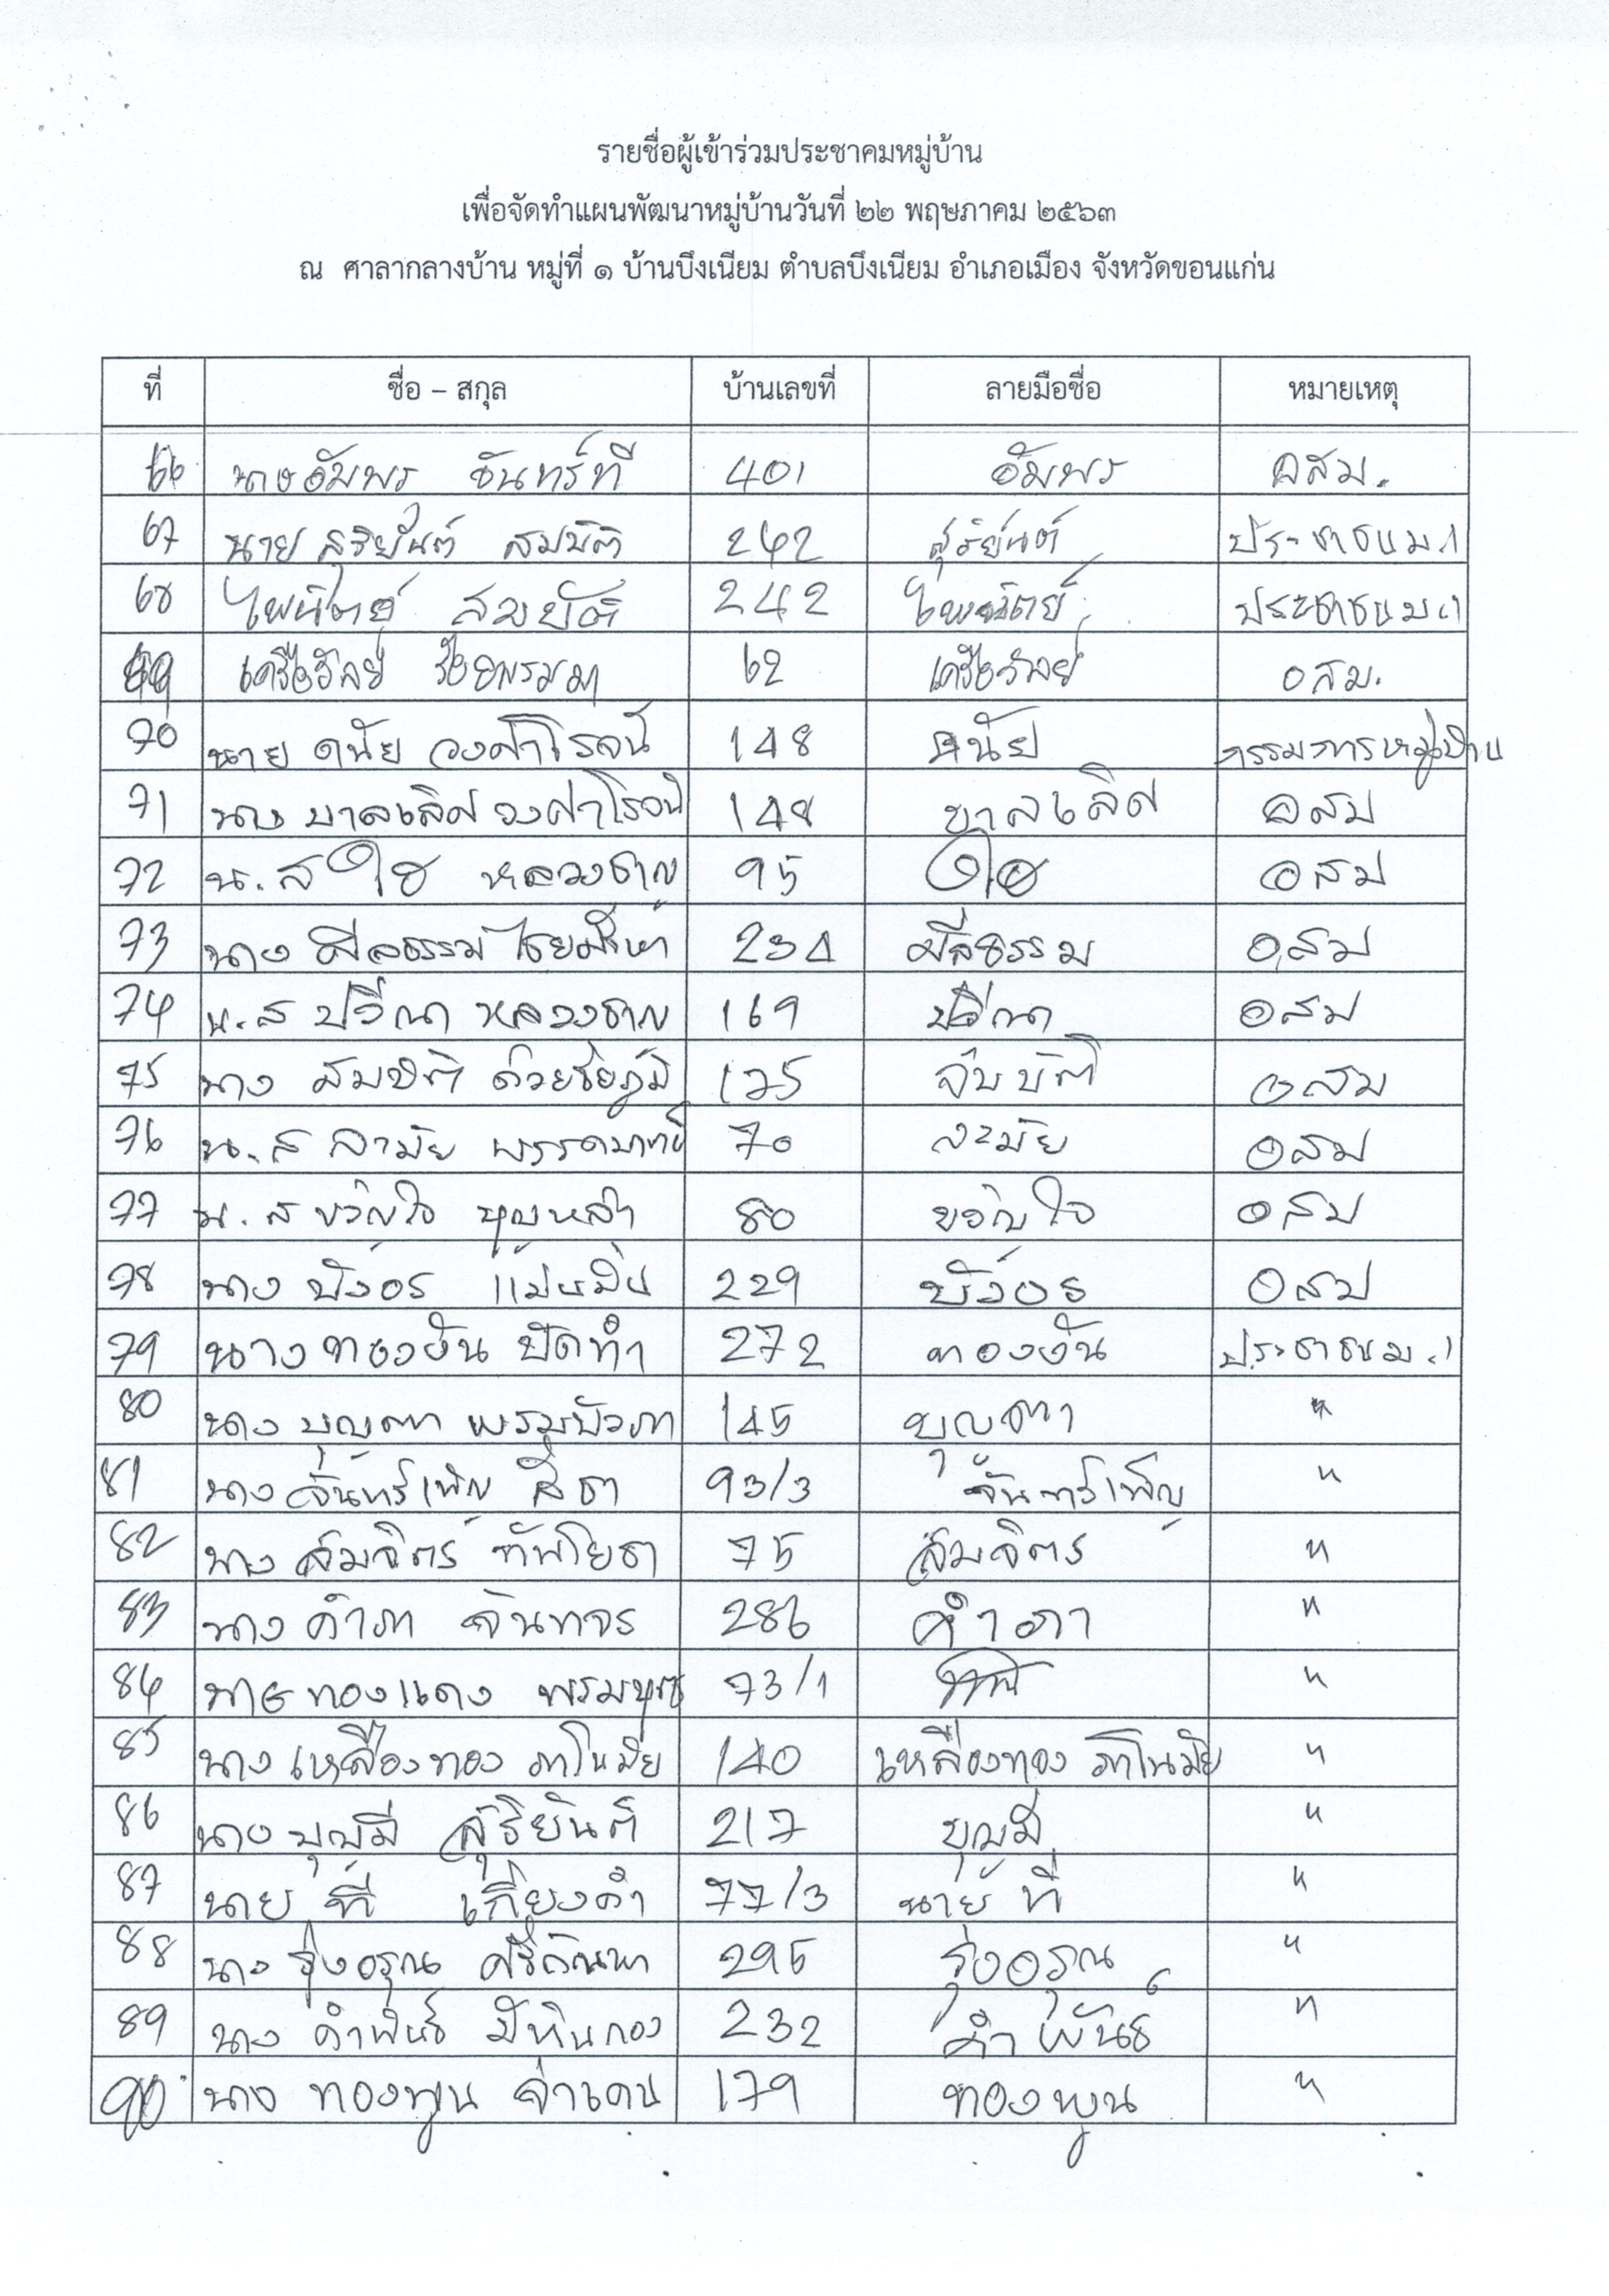 รายชื่อผู้เข้าร่วมประชาคมหมู่บ้าน
เพื่อจัดทำแผนพัฒนาหมู่บ้านวันที่ ๒๒ พฤษภาคม ๒๕๖๓
ณ ศาลากลางบ้าน หมู่ที่ ๑ บ้านบึงเนียม ตำบลบึงเนียม อำเภอเมือง จังหวัดขอนแก่น
ที่ ชื่อ – สกุล บ้านเลขที่ ลายมือชื่อ หมายเหตุ
66 นางอัมพร จันทร์ที 401 อัมพร อสม.
67 นาย สุริยันต์ สมบัติ 242 สุริยันต์ ประชาชน ม.1
68 ไพฑิตย์ สมบัติ 242 ไพฑิตย์ ประชาชน ม.1
69 เครือวัลย์ 62 เครือวัลย์ อสม.
70 นาย ดนัย วงศ์คำโรจน์ 148 ดนัย กรรมการหมู่บ้าน
71 นาง บาลเลิศ 148 บาลเลิศ อสม
72 น.ส ใช หลวงชาญ 95 ใช อสม
73 นาง ศีลธรรม 234 ศีลธรรม อสม
74 น.ส ปวีณา หลวงชาญ 169 ปวีณา อสม
75 นาง สมบัติ ด้วยชัยภูมิ 175 อสม
76 น.ส ละมัย 70 ละมัย อสม
77 น.ส ขวัญใจ บุญหล้า 80 ขวัญใจ อสม
78 นาง บังอร แม่นหมื่น 229 บังอร อสม
79 นาง ทองจันทร์ ปัดทำ 272 ประชาชน ม.1
80 นาง บุญตา พรมบัวภา 145 บุญตา "
81 นาง จันทร์เพ็ญ สีชา 93/3 จันทร์เพ็ญ "
82 นาง สมจิตร์ ทัพโยธา 75 สมจิตร์ "
83 นาง คำภา จันทจร 286 คำภา "
84 ทองแดง 73/1 "
85 นาง เหลืองทอง ภาโนมัย 140 เหลืองทอง ภาโนมัย "
86 นาง บุญมี สุริยันต์ 217 บุญมี "
87 นาย ที เกียงคำ 77/3 นาย ที "
88 นาง รุ่งอรุณ 295 รุ่งอรุณ "
89 นาง คำพันธ์ มีหินกอง 232 คำพันธ์ "
90 นาง ทองพูน จำเดน 179 ทองพูน "